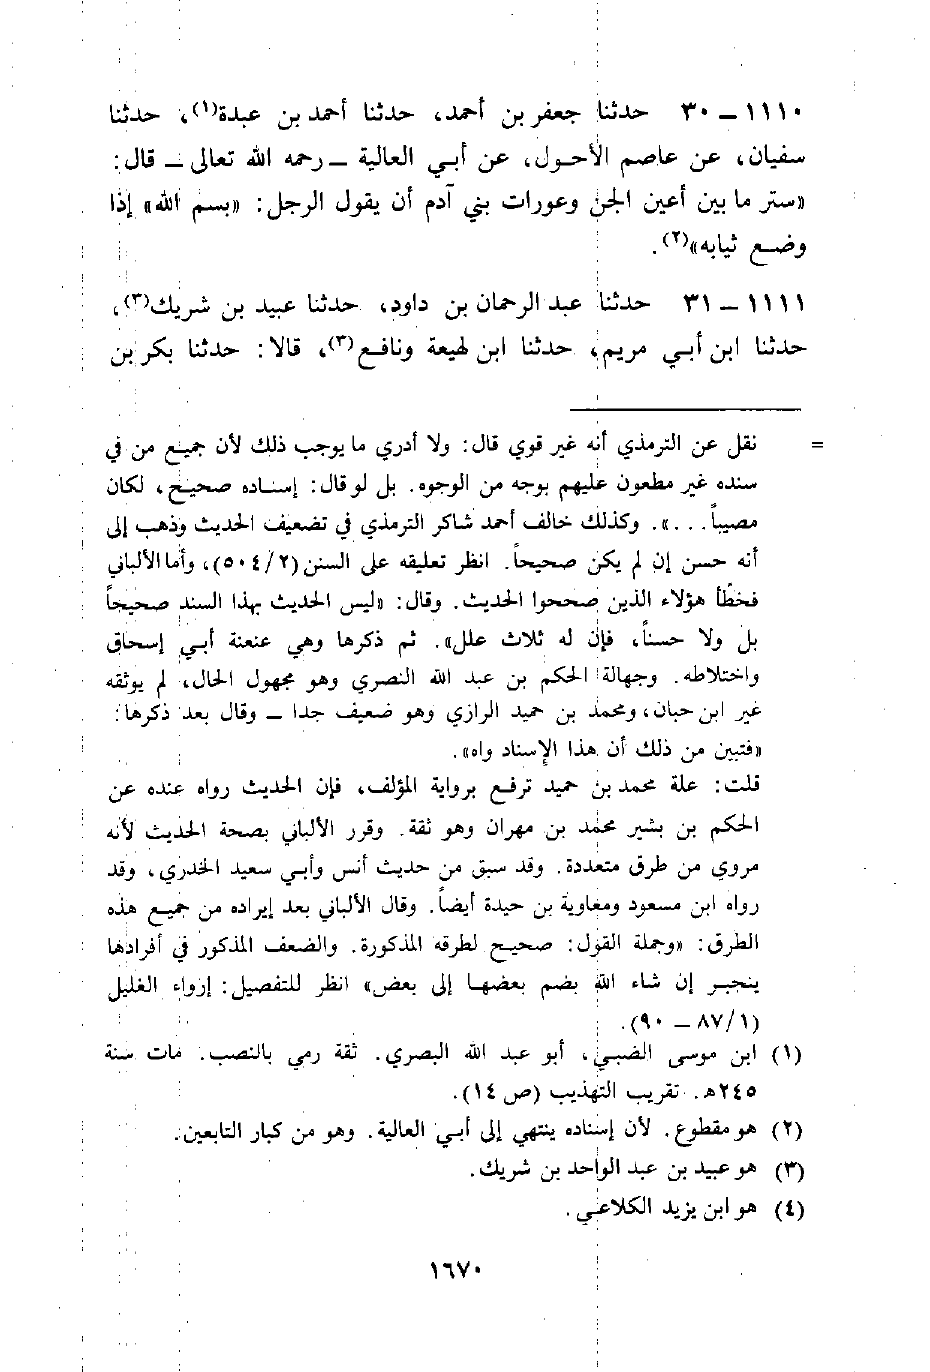 ١١١٠ – ٣٠ حدثنا جعفر بن أحمد، حدثنا أحمد بن عبدة(١)، حدثنا
سفيان، عن عاصم الأحول، عن أبي العالية – رحمه الله تعالى – قال:
«ستر ما بين أعين الجن وعورات بني آدم أن يقول الرجل: «بسم الله» إذا
وضع ثيابه»(٢).
١١١١ – ٣١ حدثنا عبد الرحمان بن داود، حدثنا عبيد بن شريك(٣)،
حدثنا ابن أبي مريم، حدثنا ابن لهيعة ونافع(٣)، قالا: حدثنا بكر بن
= نقل عن الترمذي أنه غير قوي قال: ولا أدري ما يوجب ذلك لأن جميع من في
سنده غير مطعون عليهم بوجه من الوجوه. بل لو قال: إسناده صحيح، لكان
مصيباً...». وكذلك خالف أحمد شاكر الترمذي في تضعيف الحديث وذهب إلى
أنه حسن إن لم يكن صحيحاً. انظر تعليقه على السنن (٥٠٤/٢)، وأما الألباني
فخطّأ هؤلاء الذين صححوا الحديث. وقال: «ليس الحديث بهذا السند صحيحاً
بل ولا حسناً، فإن له ثلاث علل». ثم ذكرها وهي عنعنة أبي إسحاق
واختلاطه. وجهالة الحكم بن عبد الله النصري وهو مجهول الحال، لم يوثقه
غير ابن حبان، ومحمد بن حميد الرازي وهو ضعيف جدا – وقال بعد ذكرها:
«فتبين من ذلك أن هذا الإسناد واه».
قلت: علة محمد بن حميد ترفع برواية المؤلف، فإن الحديث رواه عنده عن
الحكم بن بشير محمد بن مهران وهو ثقة. وقرر الألباني بصحة الحديث لأنه
مروي من طرق متعددة. وقد سبق من حديث أنس وأبي سعيد الخدري، وقد
رواه ابن مسعود ومعاوية بن حيدة أيضاً. وقال الألباني بعد إيراده من جميع هذه
الطرق: «وجملة القول: صحيح لطرقه المذكورة. والضعف المذكور في أفرادها
ينجبر إن شاء الله بضم بعضها إلى بعض» انظر للتفصيل: إرواء الغليل
(٨٧/١ – ٩٠).
(١) ابن موسى الضبي، أبو عبد الله البصري. ثقة رمي بالنصب. مات سنة
٢٤٥هـ. تقريب التهذيب (ص ١٤).
(٢) هو مقطوع. لأن إسناده ينتهي إلى أبي العالية. وهو من كبار التابعين.
(٣) هو عبيد بن عبد الواحد بن شريك.
(٤) هو ابن يزيد الكلاعي.
١٦٧٠